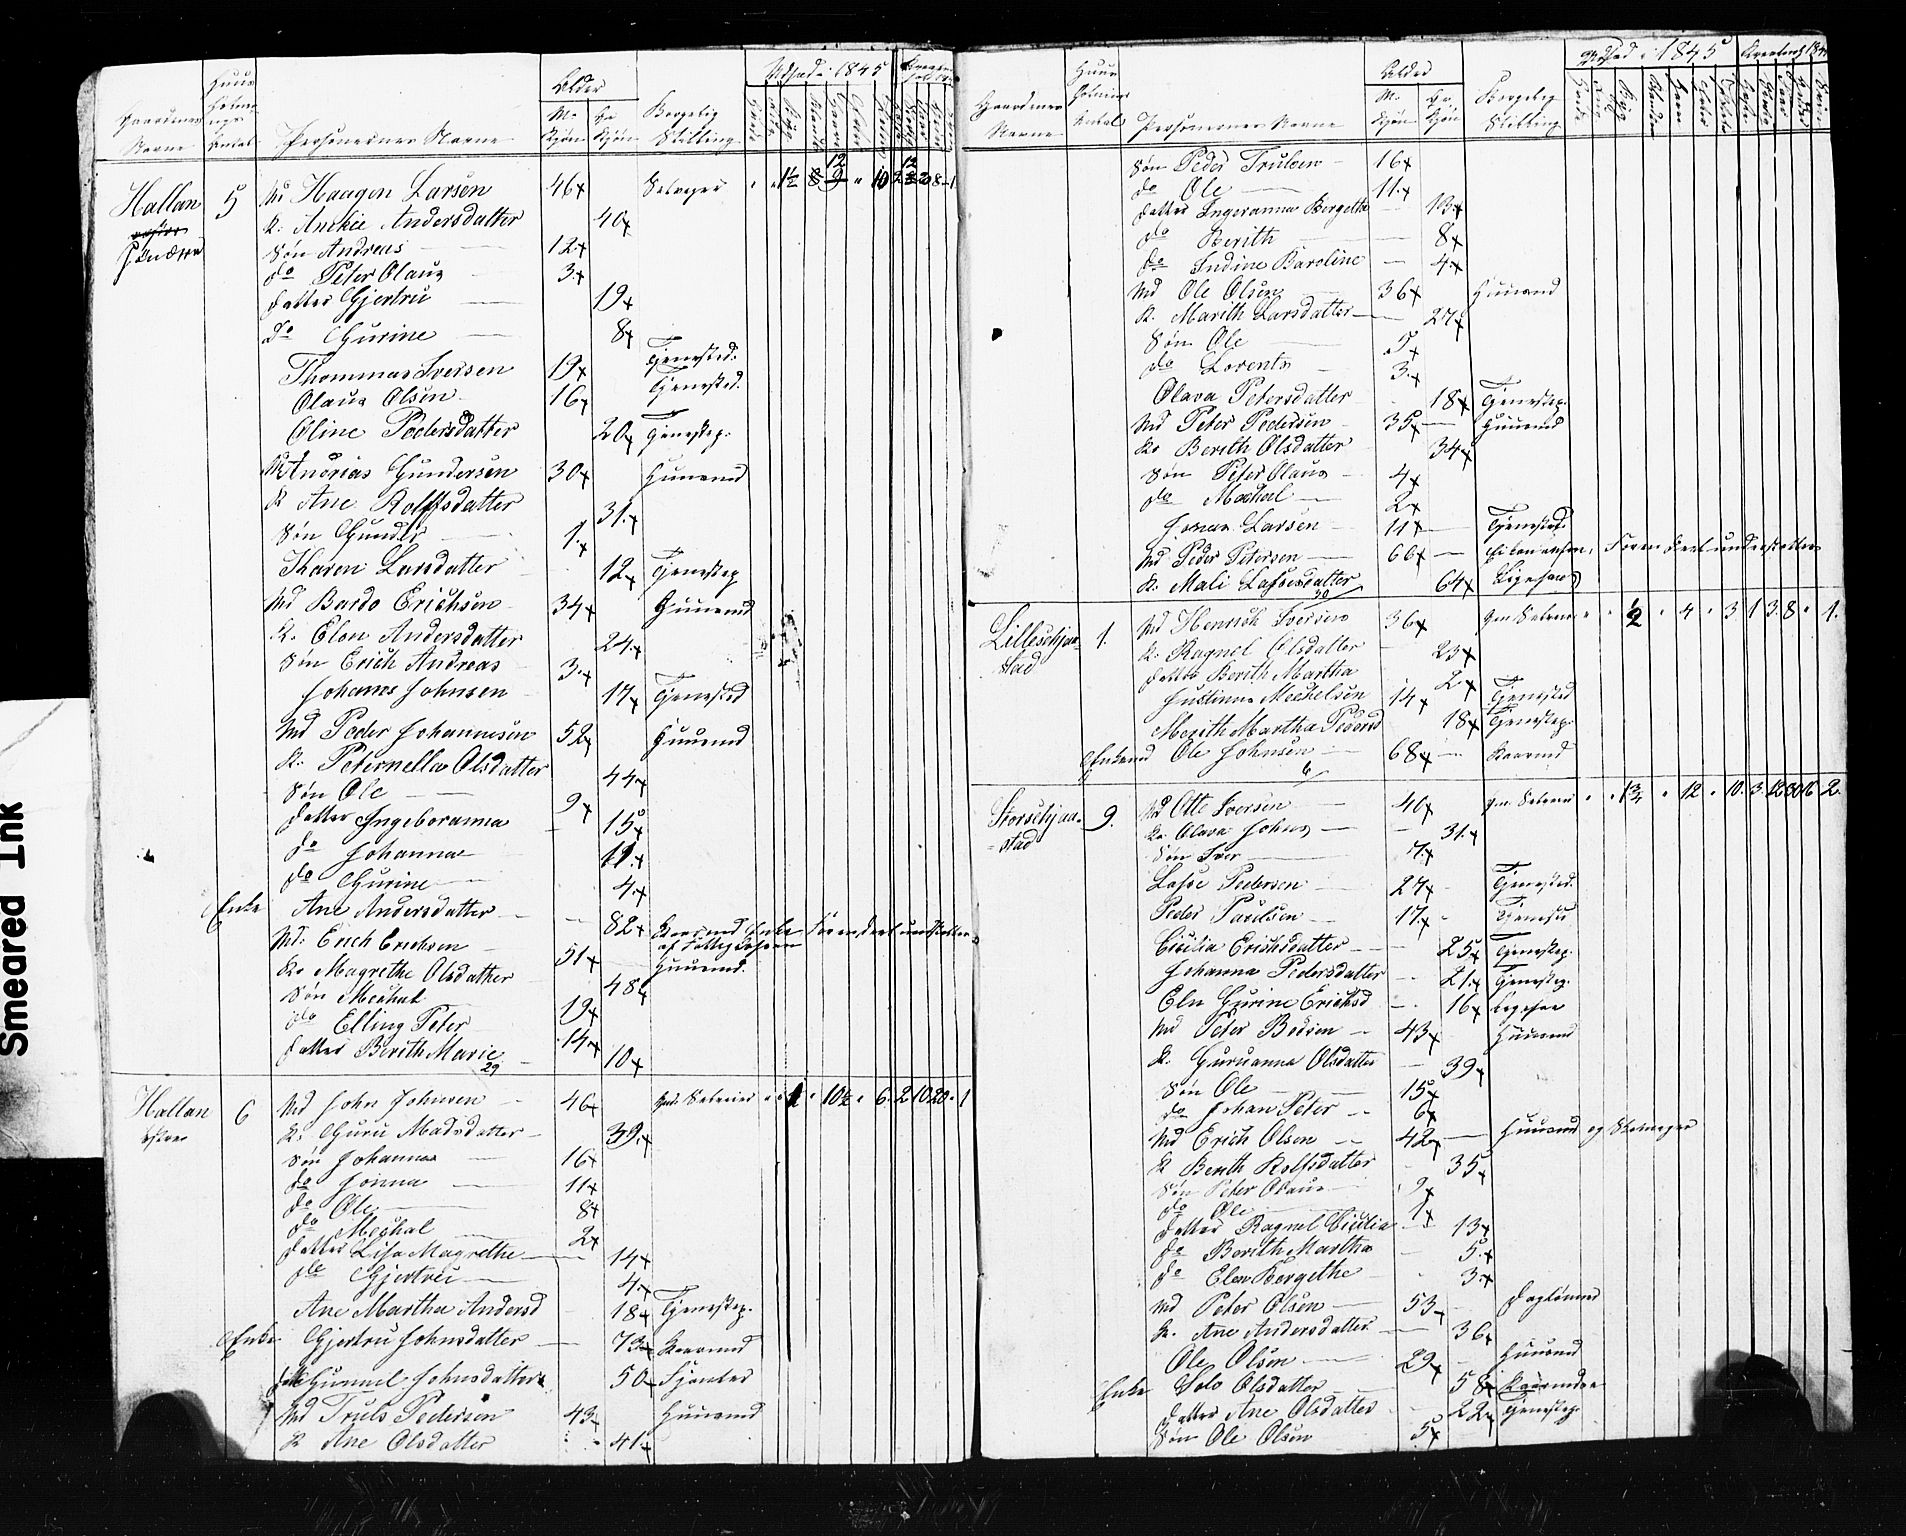 Gaardenes Navne
Huus holdningernes Antal
Personernes Navne
Alder
M. Kjøn
Qv. Kjøn
Borgerlig Stilling
Udsæd i 1845
Hallan
søndre
5
Md Haagen Larsen 46
K. Anekie Andersdatter 40
Søn Andreas 12
do Peter Olaus 3
datter Gjertru 19
do Gurine 8
Thommas Iversen 19 Tjenested.
Olaus Olsen 16 Tjenested.
Oline Pedersdatter 20 Tjenestep.
Md Andrias Gundersen 30 Huusmd
K Ane Rolfsdatter 31
Søn Gunder 1
Karen Larsdatter 12 Tjenestep
Md Bardo Erichsen 34 Huusmd
K. Elen Andersdatter 24
Søn Erich Andreas 3
Johanes Johnsen 17 Tjenested
Md Peder Johannesen 52 Huusmd
K. Peternella Olsdatter 44
Søn Ole 9
datter Ingeboranna 15
do Johanna 11
do Gurine 4
Enke Ane Andersdatter 82
Md. Erich Erichsen 51 Huusmd.
K. Magrethe Olsdatter 48
Søn Mechal 19
do Elling Peter 14
datter Berith Marie 10
29
Hallan 6
Md John Johnsen 46
K. Guru Madsdatter 39
Søn Johannes 16
do Jonna 11
do Ole 8
do Mechal 2
datter Lisa Magrethe 14
do Gjertru 4
Ane Martha Andersd 18 Tjenestep.
Enke Gjertru Johnsdatter 73
Gunnel Johnsdatter 50
Md Truls Pedersen 43 Huusmd
K Ane Olsdatter 41
Gaardenes Navne
Huus holdnings Antal
Personernes Navne
Alder
M. Kjøn
Qv. Kjøn
Borgerlig Stilling
Udsæd i 1845
Søn Peder Trulsen 16
do Ole 11
datter Ingeranna Bergetta 13
do Berith 8
do Indine Baroline 4
Md Ole Olsen 36 Huusmd
K. Marith Larsdatter 27
Søn Ole 5
do Lorents 3
Olava Petersdatter 18 Tjenestep.
Md Peter Pedersen 35 Huusmd
K. Berith Olsdatter 34
Søn Peter Olaus 4
do Mechal 2
Jonas Larsen 11 Tjenested.
Md Peder Petersen 66
K. Mali Lassesdatter 64 Ligesaa
30
Lilleschjen-
stad
1.
Md Henrich Iversen 36
K. Ragnel Olsdatter 23
datter Berith Martha 2
Justinus Mechelsen 14 Tjenested
Merith Martha Pedersd 18 Tjenestep.
Enkemd Ole Johnsen 68
6
Storschjen-
-stad
9.
Md Otte Iversen 40
K. Olava Johns 31
Søn Iver 7
Lasse Pedersen 27 Tjenested.
Peder Paulsen 17 Tjenested
Cicilia Erichsdatter 25 Tjenestep.
Johanna Pedersdatter 21 Tjenestep.
Eln Gurine Erichsd 16 Ligesaa
Md Peter Bodsen 43 Huusmd
K. Guruanna Olsdatter 39
Søn Ole 15
do Johan Peter 6
Md Erich Olsen 42 Huusmd og Skomager
K Berith Rolfsdatter 35
Søn Peter Olaus 9
do Ole 1
datter Ragnel Cicilia 13
do Berith Martha 5
do Elen Bergethe 3
Md Peter Olsen 53 Dagleiner
K. Ane Andersdatter 36
Ole Olsen 29 Huusmd
Enke Solo Olsdatter 58
datter Ane Olsdatter 22 Tjenestep.
Søn Ole Olsen 5
Smeared Ink